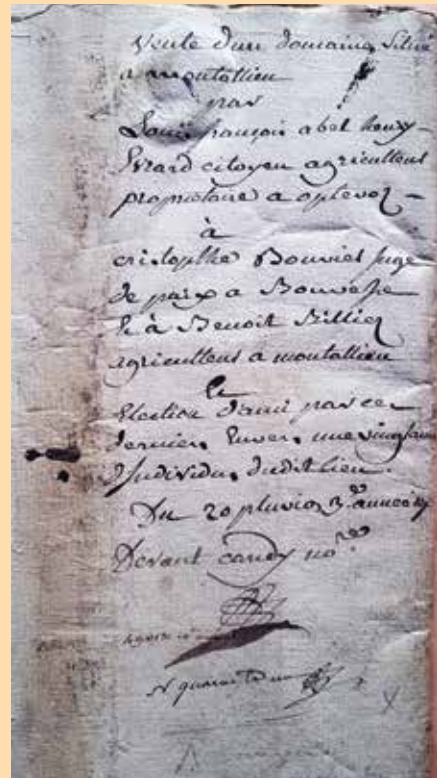 Vente d'un domaine situé
a montallieu
par
Louis françois abel henry
Evrard citoyen agriculteur
propriétaire a optevoz
à
cristophe Bouvier juge
de paix a Bouvesse
& à Benoit Billiez
agriculteur a montallieu
Et
Election d'ami par ce
dernier Envers une vingtaine
d'Individus dudit lieu.
Du 20 pluviose 3e année
Devant candy nore
N quarante